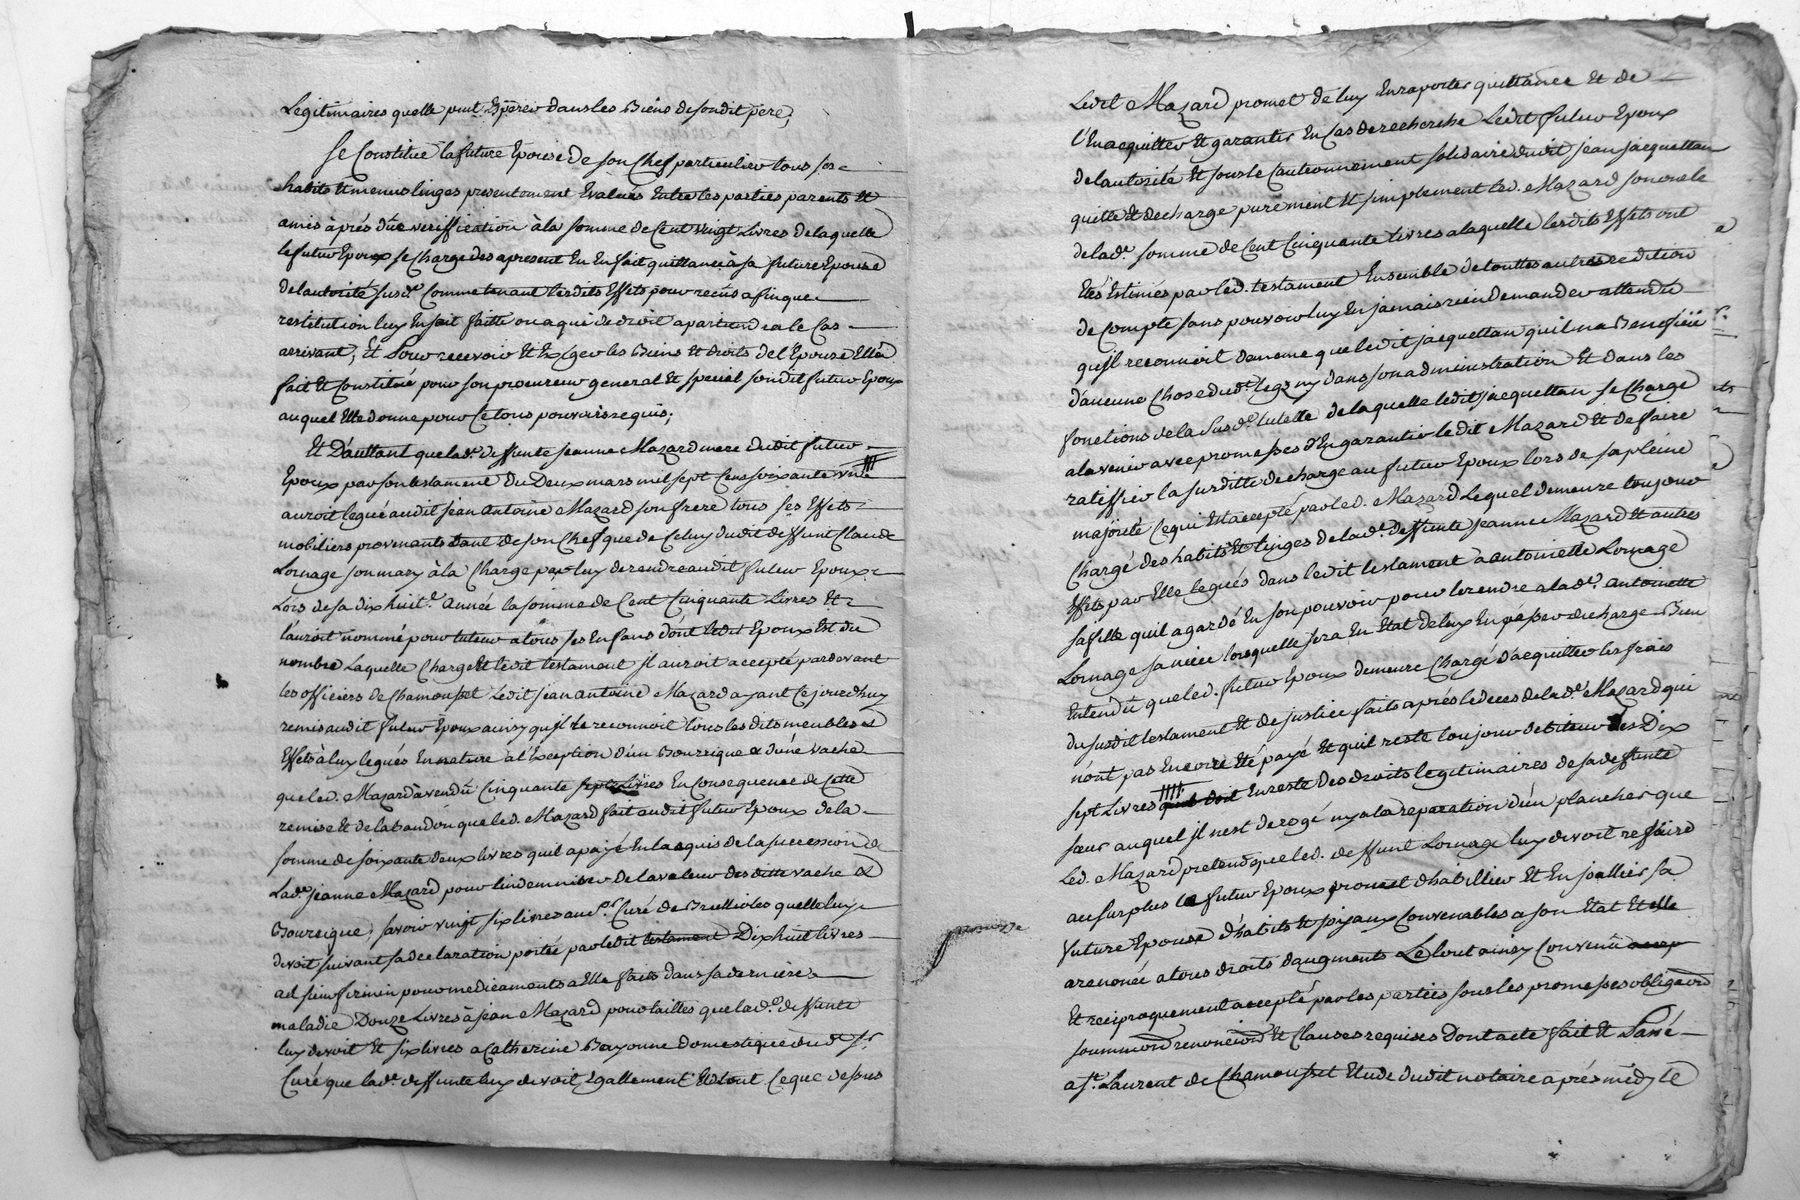 Legitimaires quelle peut Espérer dans les Biens de son dit père;
Se Constitue la future Epouse de son Chef particulier tous ses
habits et menus linges presentement Evalués Entre les parties parents et
amis après dûe veriffication à la somme de Cent vingt Livres de laquelle
le futur Epoux se Charge des apresent En En fait quittance à sa future Epouse
de lautorité susd.e Comme tenant lesdits Effets pour recûs afinque
restitution luy En soit faitte ou a qui de droit apartiendra le Cas
arrivant, Et Pour recevoir Et Exiger les Biens Et droits de l'Epouse Elle a
fait Et Constitué pour son procureur general Et special son dit futur Epoux
auquel Elle donne pour Ce tous pouvoirs requis;
Et D'auttant que lad.e deffunte Jeanne Mazard mere dudit futur
Epoux par son testament du Deux mars mil sept Cens soixante
auroit legué audit Jean Antoine Mazard son frere tous ses Effets
mobiliers provenants tant de son Chef que de Celuy dudit deffunt Claude
Lornage son mary à la Charge par luy de rendre audit futur Epoux
Lors de sa dix huit.e année la somme de Cent Cinquante Livres Et
l'auroit nommé pour tuteur a tous ses Enfans dont ledit Epoux Est du
nombre Laquelle Charge Et ledit testament il auroit accepté pardevant
les officiers de Chamousset Ledit Jean Antoine Mazard ayant Cejourdhuy
remis audit futur Epoux ainsy qu'il le reconnoit tous lesdits meubles Et
Effets à luy legués En nature à l'Exception d'un Bourrique & d'une vache
que led. Mazard à vendû Cinquante sept Livres En Consequence de Cette
remise Et de labandon que led. Mazard fait audit futur Epoux de la
somme de soixante deux livres quil a payé En lacquis de la succession de
Lad.e Jeanne Mazard pour l'indemniser de la valeur desditte vache &
Bourrique, savoir vingt six livres au s.r Curé de Brullioles quelle luy
devoit suivant sa declaration portée par ledit testament Dix huit livres
ad sieur firmin pour medicaments a Elle faits dans sa derniere
maladie Douze Livres à Jean Mazard pour tailles que lad.e deffunte
luy devoit Et six livres a Catherine Bayonne domestique dud. s.r
Curé que lad.e deffunte luy devoit Egallement Et de tout Ceque dessus
Ledit Mazard promet de luy En raporter quittance Et de
l'En acquitter Et garantir En Cas de recherche Ledit futur Epoux
de lautorité Et sous le Cautionnement solidaire dudit Jean Jacquettan
quitte Et decharge purement Et simplement led. Mazard son oncle
de lad.e somme de Cent Cinquante livres a laquelle lesdits Effets ont
Etés Estimés par led. testament Ensemble de touttes autres redition
de Compte sans pouvoir luy En jamais rien demander attendû
qu'il reconnoit de meme que ledit Jacquettan qu'il na Beneficié
d'aucune Chose dud.t legs ny dans son administration Et dans les
fonctions de la susd.e tutelle de laquelle ledit Jacquettan se Charge
a lavenir avec promesses d'En garantir ledit Mazard Et de faire
ratiffier la susditte decharge au futur Epoux lors de sa pleine
majorité Ce qui Est accepté par led. Mazard Lequel demeure toujour
Chargé des habits Et linges de lad.e deffunte Jeanne Mazard Et autres
Effets par Elle legués dans ledit testament à Antoinette Lornage
sa fille quil a gardé En son pouvoir pour le rendre a lad.e Antoinette
Lornage sa niece lorsquelle sera En Etat de luy En passer decharge Bien
Entendû que led. futur Epoux demeure Chargé d'acquitter les frais
du susdit testament Et de justice faits après le deces de lad.e Mazard qui
n'ont pas Encore Eté payé Et quil reste toujour debiteur des Dix
sept Livres quil doit En reste des droits legitimaires de sa deffunte
sœur auquel il nest derogé ny a la reparation d'un plancher que
Led. Mazard pretend que led. deffunt Lornage luy devoit refaire
au surplus le futur Epoux promet d'habillier Et En joallier sa
promesse
future Epouse d'habits Et joyaux Convenables a son Etat Et Elle
a renoncé a tous droits d'augments Le tout ainsy Convenû
Et reciproquement accepté par les parties sous les promesses obligaons
soummons renonciaons Et Clauses requises Dont acte fait Et Passé
a S.t Laurent de Chamousset Etude dudit notaire après midy le